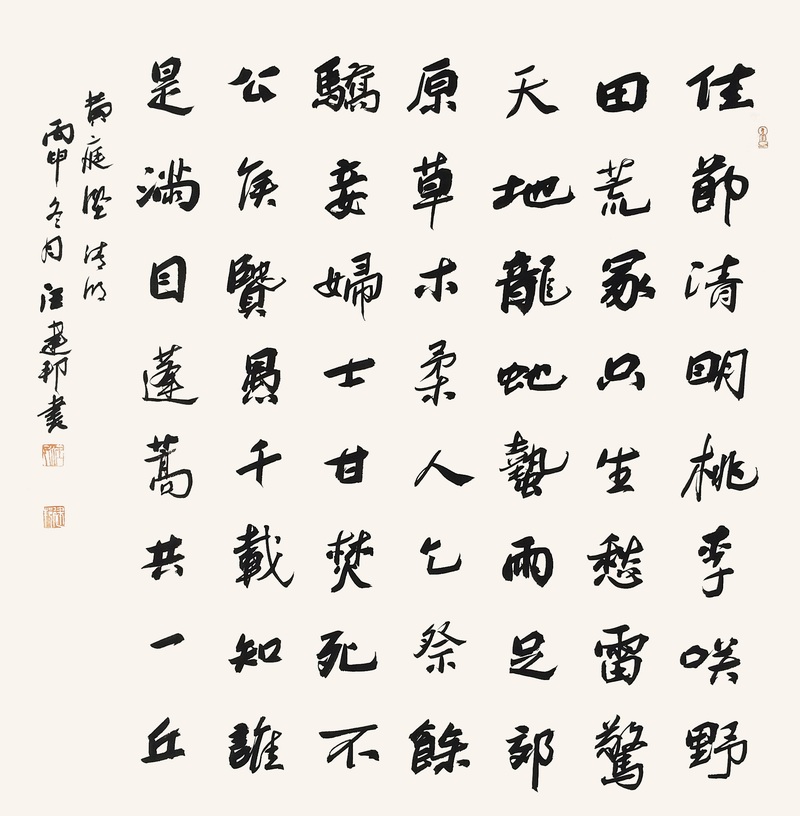 佳節清明桃李咲野
田荒冢只生愁雷驚
天地龍蛇蟄雨足郊
原草木柔人乞祭餘
驕妾婦士甘焚死不
公侯賢愚千載知誰
是滿目蓬蒿共一丘
黄庭堅清明
丙申冬月汪建邦書